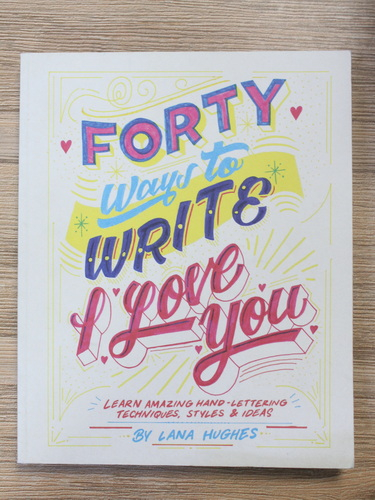 FORTY
Ways to
WRITE
I Love
You
LEARN AMAZING HAND-LETTERING
TECHNIQUES, STYLES & IDEAS
BY LANA HUGHES